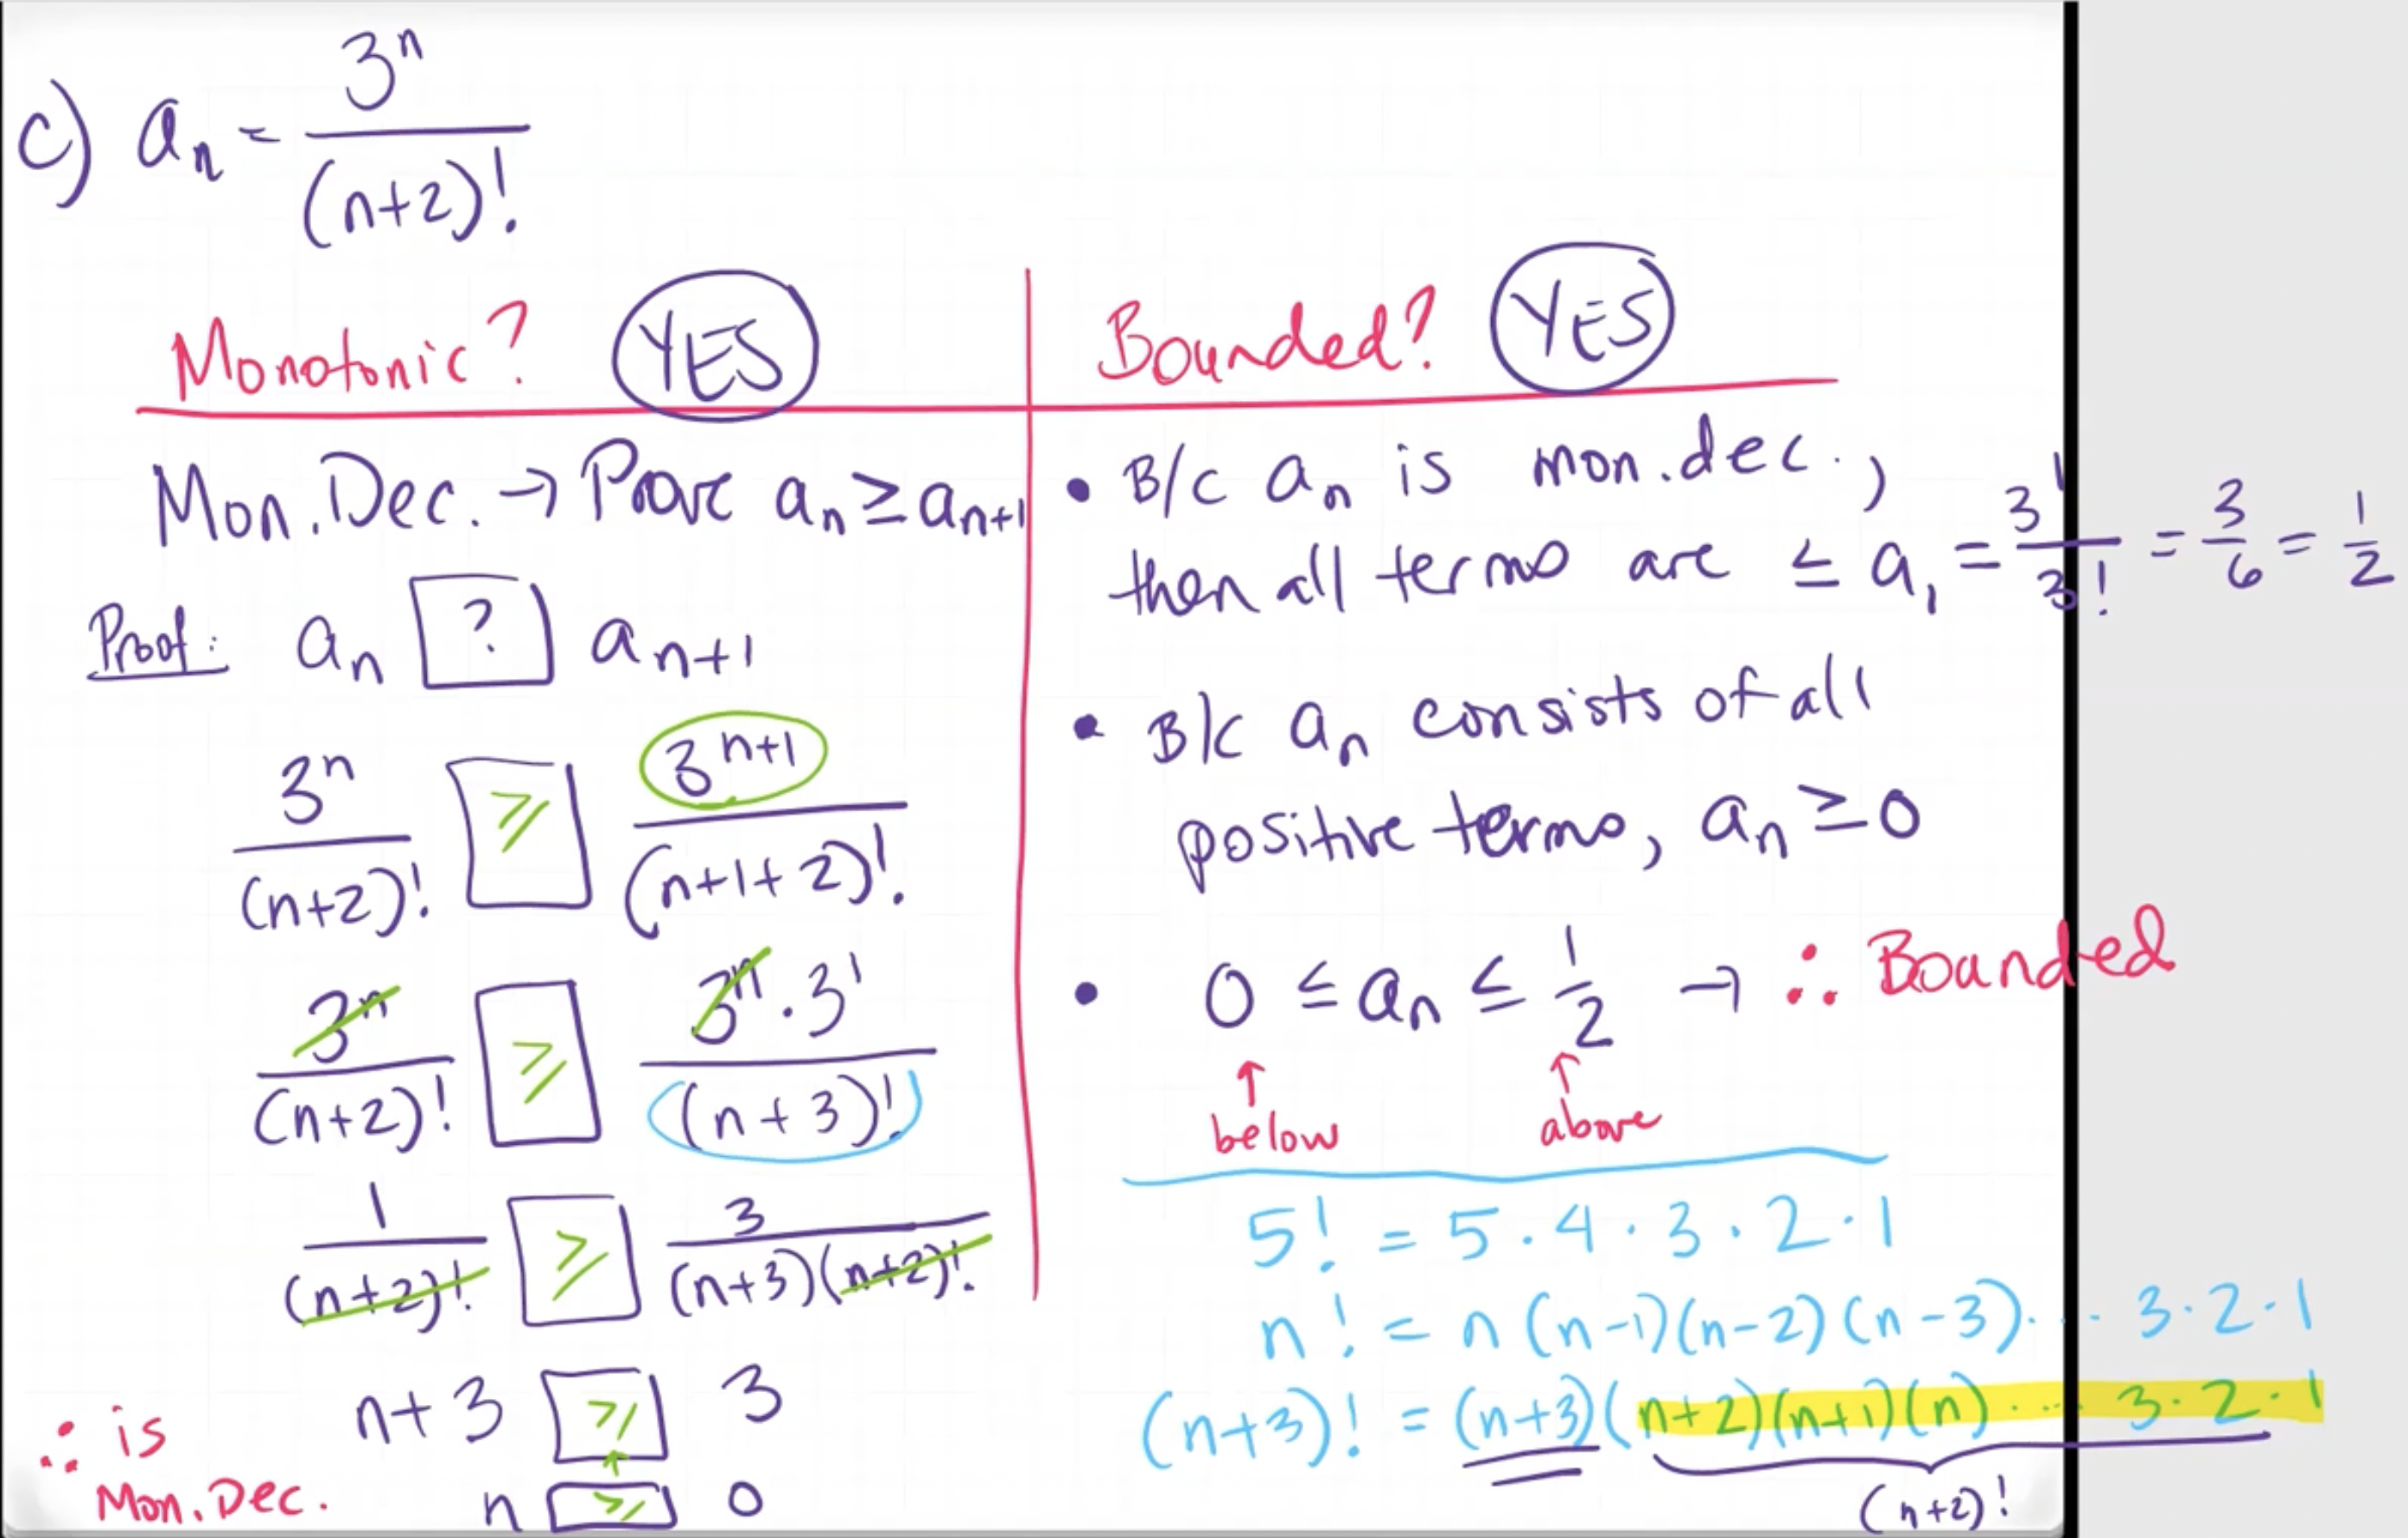 c) aₙ = 3ⁿ / (n+2)!
Monotonic? YES
Mon. Dec. → Prove aₙ ≥ aₙ₊₁
Proof: aₙ ? aₙ₊₁
3ⁿ / (n+2)! ≥ 3ⁿ⁺¹ / (n+1+2)!
3ⁿ / (n+2)! ≥ 3ⁿ · 3¹ / (n+3)!
1 / (n+2)! ≥ 3 / (n+3)(n+2)!
n+3 ≥ 3
n ≥ 0
∴ is
Mon. Dec.
Bounded? YES
• B/c aₙ is mon. dec.,
then all terms are ≤ a₁ = 3¹ / 3! = 3/6 = 1/2
• B/c aₙ consists of all
positive terms, aₙ ≥ 0
• 0 ≤ aₙ ≤ 1/2 → ∴ Bounded
↑ ↑
below above
5! = 5 · 4 · 3 · 2 · 1
n! = n(n-1)(n-2)(n-3)· ·· 3·2·1
(n+3)! = (n+3)(n+2)(n+1)(n)· ·· 3·2·1
(n+2)!